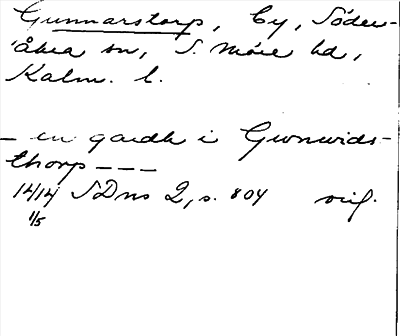 Gunnarstorp, by, Söder-
åkra sn, S. Möre hd,
Kalm. l.
– en gardh i Gwnwids-
thorp – – –
1414 SDns 2, s. 804 orig.
1/5